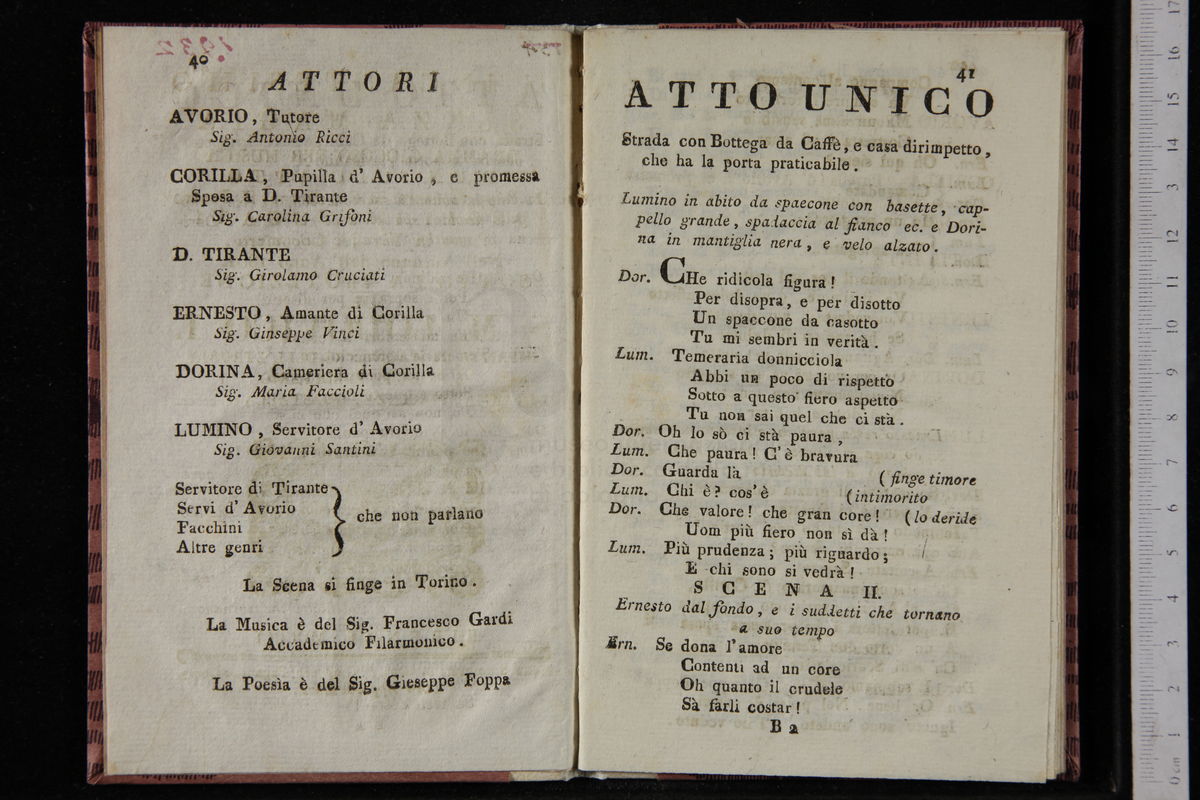 1932
40
ATTORI
AVORIO, Tutore
Sig. Antonio Ricci
CORILLA, Pupilla d' Avorio, e promessa
Sposa a D. Tirante
Sig. Carolina Grifoni
D. TIRANTE
Sig. Girolamo Cruciati
ERNESTO, Amante di Corilla
Sig. Ginseppe Vinci
DORINA, Cameriera di Corilla
Sig. Maria Faccioli
LUMINO, Servitore d' Avorio
Sig. Giovanni Santini
Servitore di Tirante
Servi d' Avorio
Facchini
Altre genri
} che non parlano
La Scena si finge in Torino.
La Musica è del Sig. Francesco Gardi
Accademico Filarmonico.
La Poesìa è del Sig. Gieseppe Foppa
41
ATTO UNICO
Strada con Bottega da Caffè, e casa dirimpetto,
che ha la porta praticabile.
Lumino in abito da spaecone con basette, cap-
pello grande, spadaccia al fianco ec. e Dori-
na in mantiglia nera, e velo alzato.
Dor. CHe ridicola figura!
Per disopra, e per disotto
Un spaccone da casotto
Tu mi sembri in verità.
Lum. Temeraria donnicciola
Abbi un poco di rispetto
Sotto a questo fiero aspetto
Tu non sai quel che ci stà.
Dor. Oh lo sò ci stà paura,
Lum. Che paura! C'è bravura
Dor. Guarda là (finge timore
Lum. Chi è? cos'è (intimorito
Dor. Che valore! che gran core! (lo deride
Uom più fiero non sì dà!
Lum. Più prudenza; più riguardo;
E chi sono si vedrà!
SCENA II.
Ernesto dal fondo, e i suddetti che tornano
a suo tempo
Ern. Se dona l'amore
Contenti ad un core
Oh quanto il crudele
Sà farli costar!
B 2